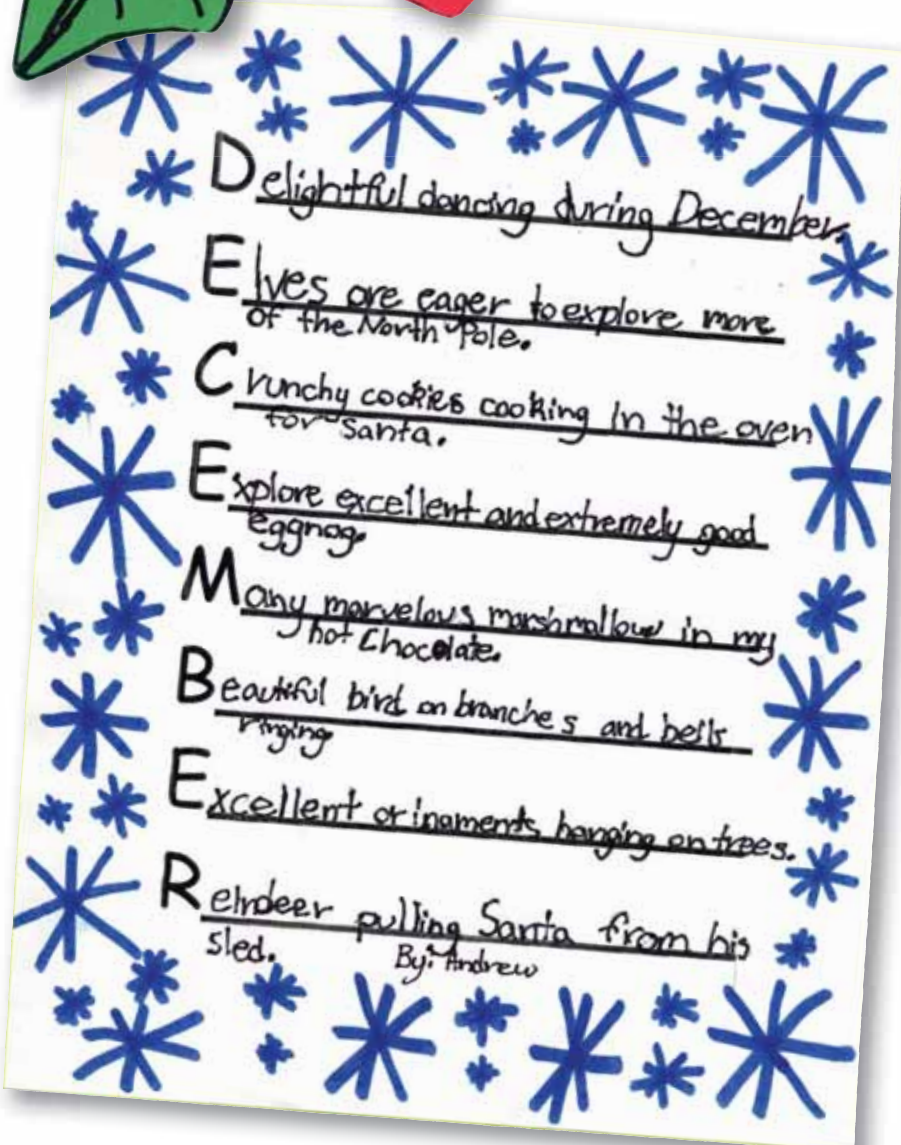 Delightful dancing during December.
Elves are eager to explore more
of the North Pole.
Crunchy cookies cooking in the oven
for Santa.
Explore excellent and extremely good
eggnog.
Many marvelous marshmallow in my
hot Chocolate.
Beautiful bird on branches and bells
ringing
Excellent orinaments hanging on trees.
Reindeer pulling Santa from his
sled.
By: Andrew